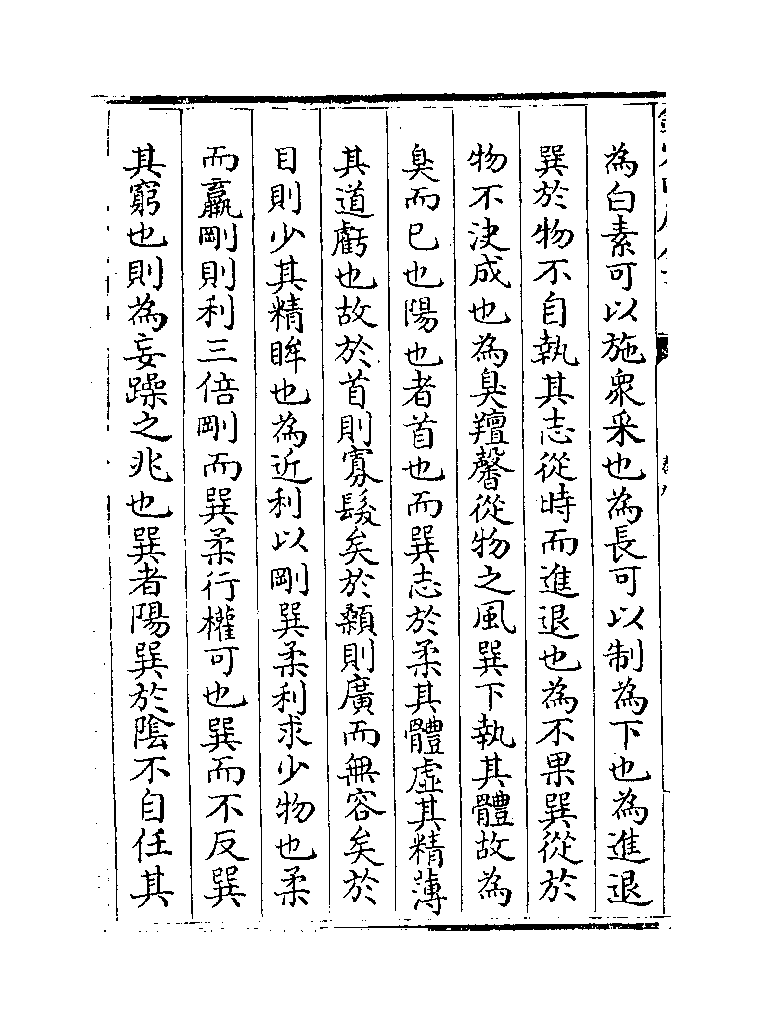 為白素可以施衆采也為長可以制為下也為進退
巽於物不自執其志從時而進退也為不果巽從於
物不決成也為臭羶馨從物之風巽下執其體故為
臭而已也陽也者首也而巽志於柔其體虛其精薄
其道虧也故於首則寡髮矣於顙則廣而無容矣於
目則少其精眸也為近利以剛巽柔利求少物也柔
而羸剛則利三倍剛而巽柔行權可也巽而不反巽
其窮也則為妄躁之兆也巽者陽巽於陰不自任其